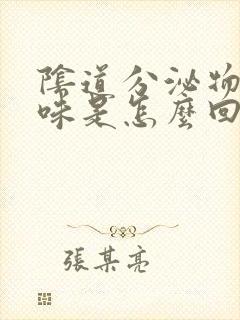 陰道分泌物
味是怎麼回
張某亮